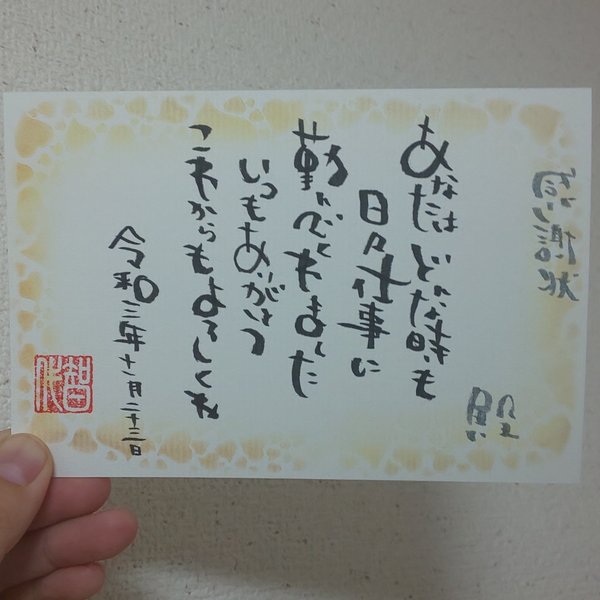 感謝状
殿
あなたは どんな時も
日々仕事に
勤んでくれました
いつもありがとう
これからもよろしくね
令和三年十一月二十三日
智代